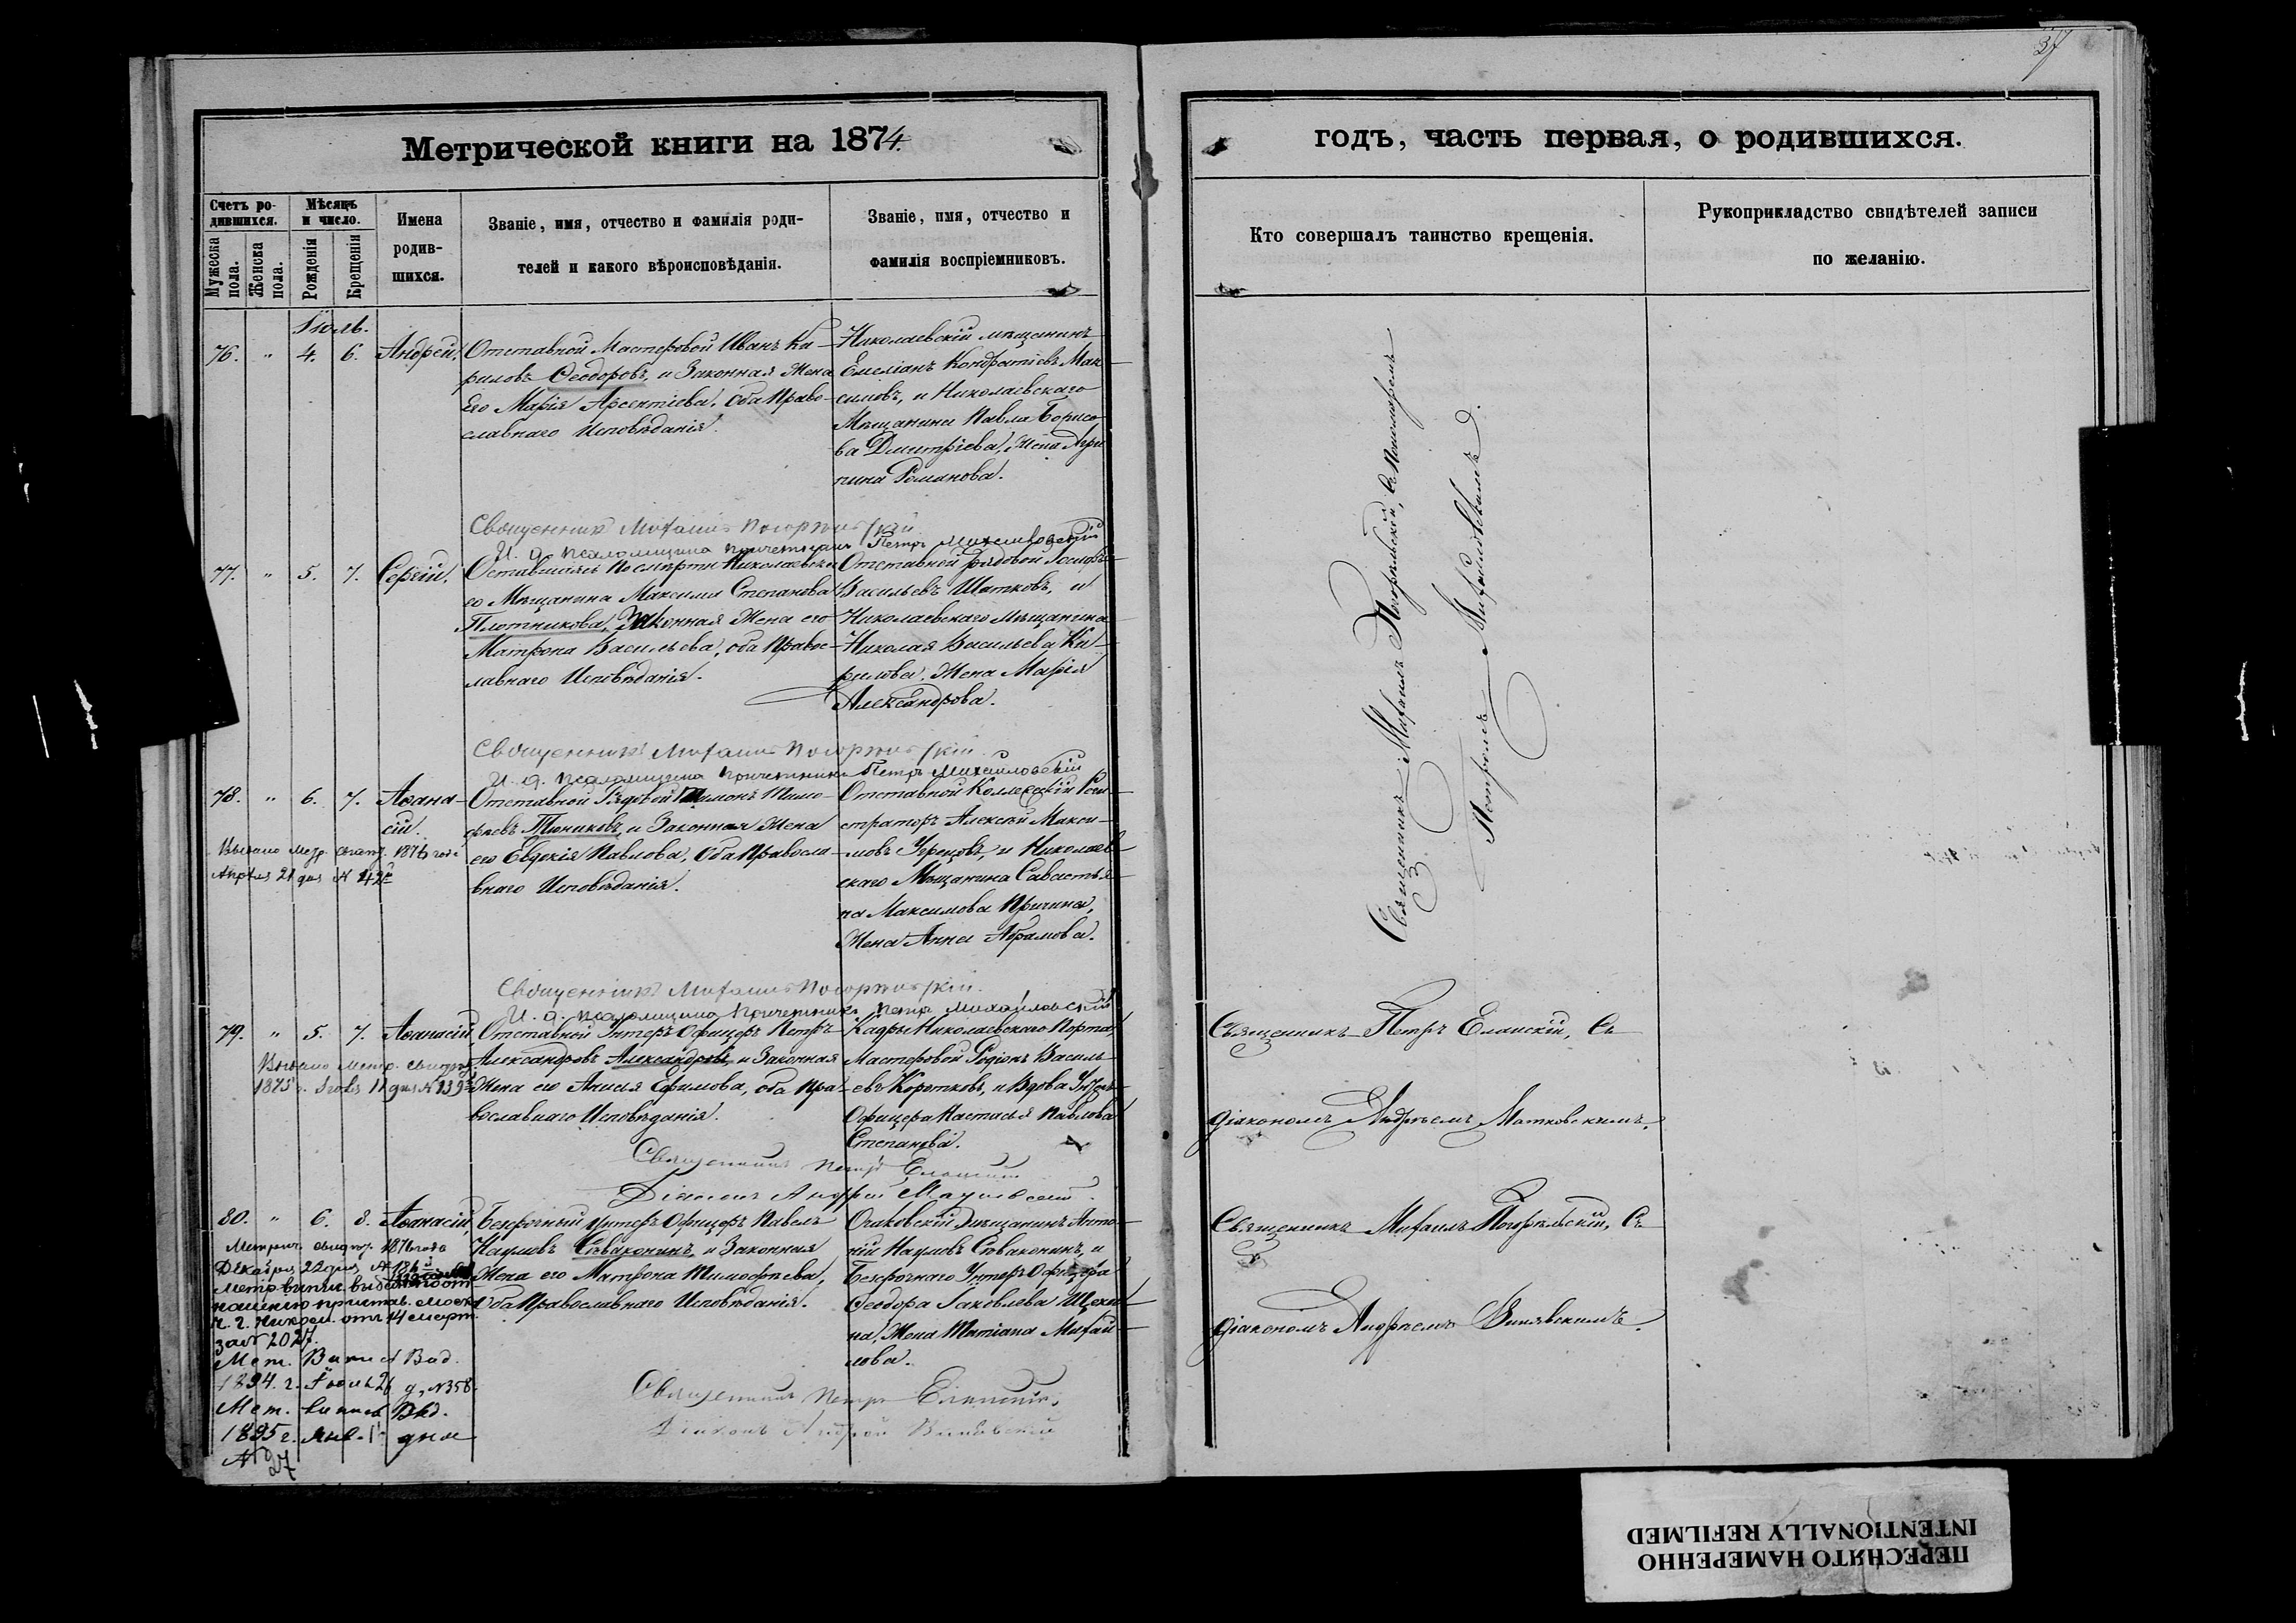 37
Метрической книги на 1874.
годъ, часть первая, о родившихся.
Счетъ ро-
дившихся.
Мѣсяцъ
и число.
Мужеска
пола.
Женска
пола.
Рожденія
Крещенія
Имена
родив-
шихся.
Званіе, имя, отчество и фамилія роди-
телей и какого вѣроисповѣданія.
Званіе, имя, отчество и
фамилія воспріемниковъ.
Кто совершалъ таинство крещенія.
Рукоприкладство свидѣтелей записи
по желанію.
Іюль.
76. " 4. 6. Андрей.
Отставной Мастеровой Иванъ Ки-
риловъ Феодоровъ, и Законная Жена
Его Марія Арсентіева, оба Право-
славнаго Исповѣданія.
Николаевскій мѣщанинъ
Емеліанъ Кондратіевъ Мак-
симовъ, и Николаевскаго
Мѣщанина Павла Борисо-
ва Дмитріева, Жена
Романова.
Священникъ Михаилъ Погорѣльскій
И. д. псаломщика причетникъ Петръ Михайловскій
77. " 5. 7. Сергій.
Оставшаяся по смерти Николаевска-
го Мѣщанина Максима Степанова
Плотникова, Законная Жена его
Матрона Васильева, оба Правос-
лавнаго Исповѣданія.
Отставной рядовой Іосифъ
Васильевъ Шатковъ, и
Николаевскаго Мѣщанина
Николая Васильева Ки-
рилова, Жена Марія
Александрова.
Священникъ Михаилъ Погорѣльскій
И. д. псаломщика причетникъ Петръ Михайловскій
78. " 6. 7. Афана-
сій.
Отставной Рядовой Тимо-
феевъ Тюниковъ, и Законная Жена
его Евдокія Павлова, Оба Правосла-
внаго Исповѣданія.
Отставной Коллежскій Реги-
страторъ Алексѣй Макси-
мовъ, и Николаев-
скаго Мѣщанина Савастья-
на Максимова Причина,
Жена Анна Абрамова.
Выдано метр. свидѣт. 1876 года
Апрѣля 21 дня № 42й
Священникъ Михаилъ Погорѣльскій
И. д. псаломщика Причетникъ Петръ Михайловскій
79. " 5. 7. Афанасій
Отставной Унтеръ Офицеръ Петръ
Александровъ Александровъ, и Законная
Жена его Анисія Ефимова, оба Пра-
вославнаго Исповѣданія.
Кадры Николаевскаго Порта,
Мастеровой Родіонъ Василь-
евъ Коротковъ, и Вдова Унтеръ
Офицера Настасья Павлова
Степанова.
Выдано метр. свидѣт.
1875 г. 11 дня № 139й
Священникъ Петръ Еланскій
Діаконъ Андрей Матковскій
80. " 6. 8. Афанасій
Безсрочный Унтеръ Офицеръ Павелъ
Наумовъ Сиваконинъ, и Законная
Жена его Матрона Тимофеева,
Оба Православнаго Исповѣданія.
Очаковскій Мѣщанинъ Анто-
ній Наумовъ Сиваконинъ, и
Безсрочнаго Унтеръ Офицера
Феодора Іаковлева Щеки-
на, Жена Татіана Михай-
лова.
Метрич. свидѣт. 1876 года
Декабря 22 дня, №
за № 2027.
Мет. Выпись Выд.
1894. г. Іюль 26 д. № 358.
Мет. выпись Выд.
1895 г. Янв. 11 дня
№ 27
Священникъ Петръ Еланскій.
Діаконъ Андрей Винявскій
Священникъ Михаилъ Погорѣльскій, съ Пономаремъ
Петромъ Михайловскимъ.
Священникъ Петръ Еланскій, съ
діакономъ Андреемъ Матковскимъ.
Священникъ Михаилъ Погорѣльскій, съ
діакономъ Андреемъ Винявскимъ.
ПЕРЕСНЯТО НАМЕРЕННО
INTENTIONALLY REFILMED